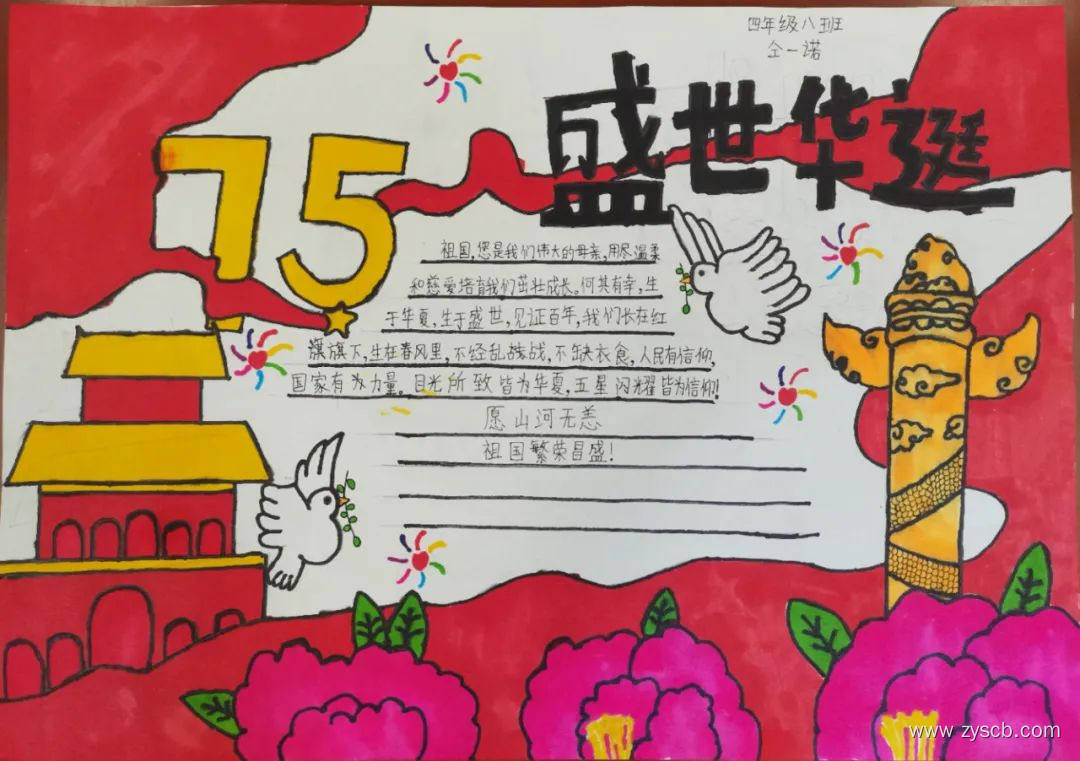 四年级八班
仝一诺
75
盛世华诞
祖国,您是我们伟大的母亲,用尽温柔
和慈爱培育我们茁壮成长。何其有幸,生
于华夏,生于盛世,见证百年,我们长在红
旗旗下,生在春风里,不经乱战,不缺衣食,人民有信仰,
国家有力量。目光所致皆为华夏,五星闪光耀皆为信仰!
愿山河无恙
祖国繁荣昌盛!
www.zyscb.com